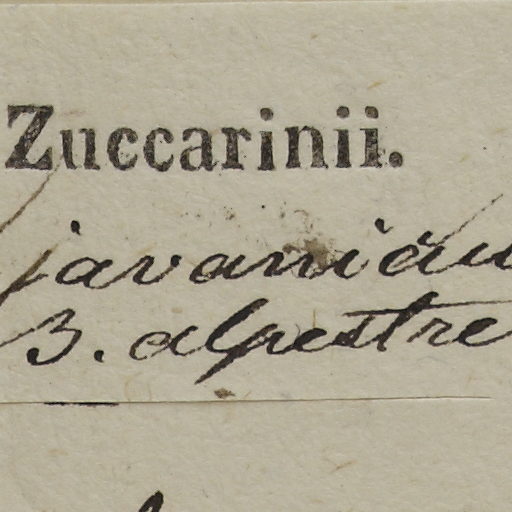 Zuccarinii.
javanicu
3. alpestre